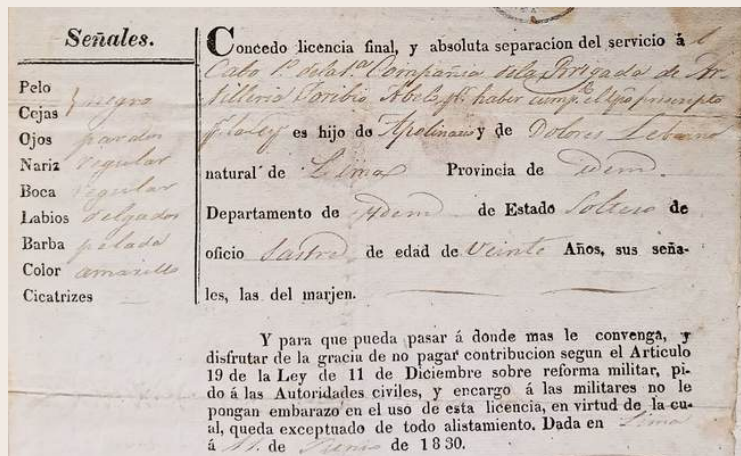 Señales.
Pelo
Cejas } negro
Ojos pardos
Nariz regular
Boca regular
Labios delgados
Barba pelada
Color amarillo
Cicatrizes —
Concedo licencia final, y absoluta separacion del servicio á l
Cabo 1º. de la 1.ª Compañia de la Brigada de Ar-
tilleria Toribio haber cump. el tpo prescripto
p. la Ley es hijo de Apolinario y de Dolores
natural de Lima Provincia de idem.
Departamento de Idem de Estado Soltero de
oficio Sastre de edad de Veinte Años, sus seña-
les, las del marjen.
Y para que pueda pasar á donde mas le convenga, y
disfrutar de la gracia de no pagar contribucion segun el Articulo
19 de la Ley de 11 de Diciembre sobre reforma militar, pi-
do á las Autoridades civiles, y encargo á las militares no le
pongan embarazo en el uso de esta licencia, en virtud de la cu-
al, queda exceptuado de todo alistamiento. Dada en Lima
á 11. de Junio de 1830.